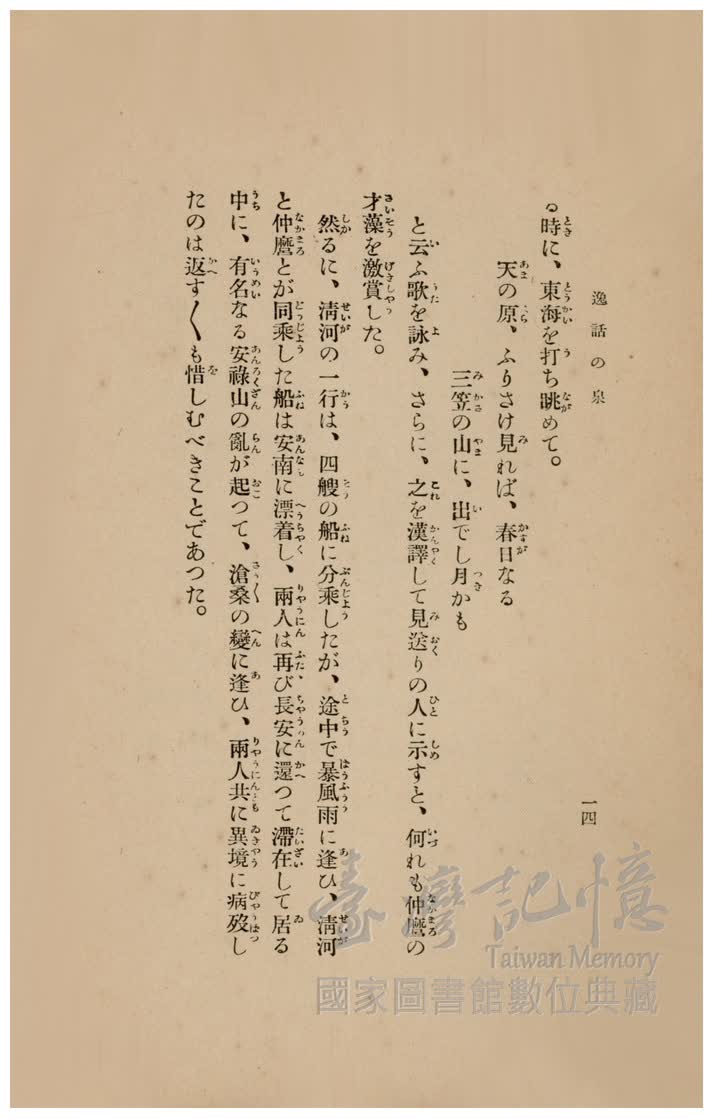 逸話の泉
一四
る時に、東海を打ち眺めて。
天の原、ふりさけ見れば、春日なる
三笠の山に、出でし月かも
と云ふ歌を詠み、さらに、之を漢譯して見送りの人に示すと、何れも仲麿の
才藻を激賞した。
然るに、淸河の一行は、四艘の船に分乘したが、途中で暴風雨に逢ひ、淸河
と仲麿とが同乘した船は安南に漂着し、兩人は再び長安に還つて滯在して居る
中に、有名なる安祿山の亂が起つて、滄桑の變に逢ひ、兩人共に異境に病歿し
たのは返す〱も惜しむべきことであつた。
臺灣記憶
Taiwan Memory
國家圖書館數位典藏